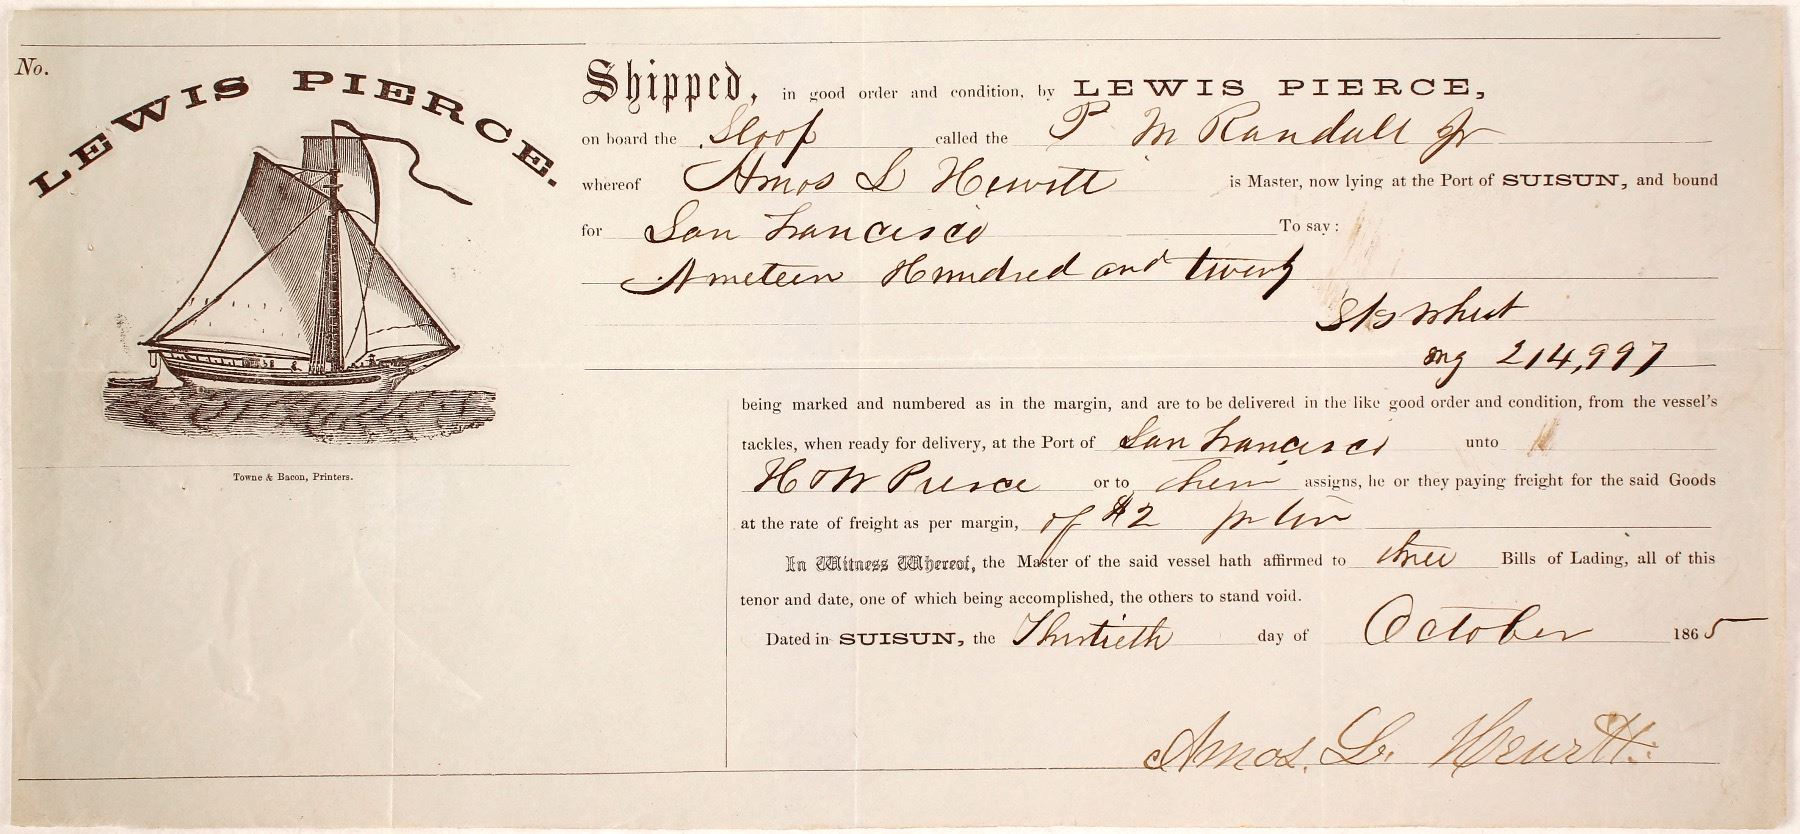 No.
LEWIS PIERCE.
Towne & Bacon, Printers.
Shipped, in good order and condition, by LEWIS PIERCE,
on board the Sloop called the P M Randall Jr
whereof Amos L Hewitt is Master, now lying at the Port of SUISUN, and bound
for San Francisco To say:
Nineteen Hundred and twenty
Sks Wheat
214,997
being marked and numbered as in the margin, and are to be delivered in the like good order and condition, from the vessel's
tackles, when ready for delivery, at the Port of San Francisco unto
H & W Pierce or to their assigns, he or they paying freight for the said Goods
at the rate of freight as per margin, of $2 pr ton
In Witness Whereof, the Master of the said vessel hath affirmed to three Bills of Lading, all of this
tenor and date, one of which being accomplished, the others to stand void.
Dated in SUISUN, the Thirtieth day of October 1865
Amos. L. Hewitt.